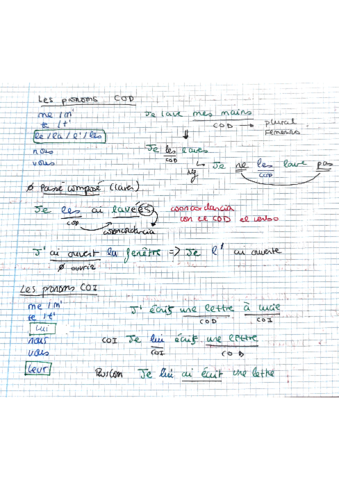 Les pronoms COD
me / m'
te / t'
le / la / l' / les
nous
vous
Je lave mes mains
COD → plural
femenino
Je les laves
COD
Ng → Je ne les lave pas
COD
Ø Passé composé (laver)
Je les ai lavées
COD
concordancia
concordancia
con el COD el verbo
J'ai ouvert la fenêtre => Je l' ai ouverte
Ø ouvrir
Les pronoms COI
me / m'
te / t'
lui
nous
vous
leur
J' écris une lettre à Lucie
COD COI
COI Je lui écris une lettre
COI COD
Je lui ai écrit une lettre